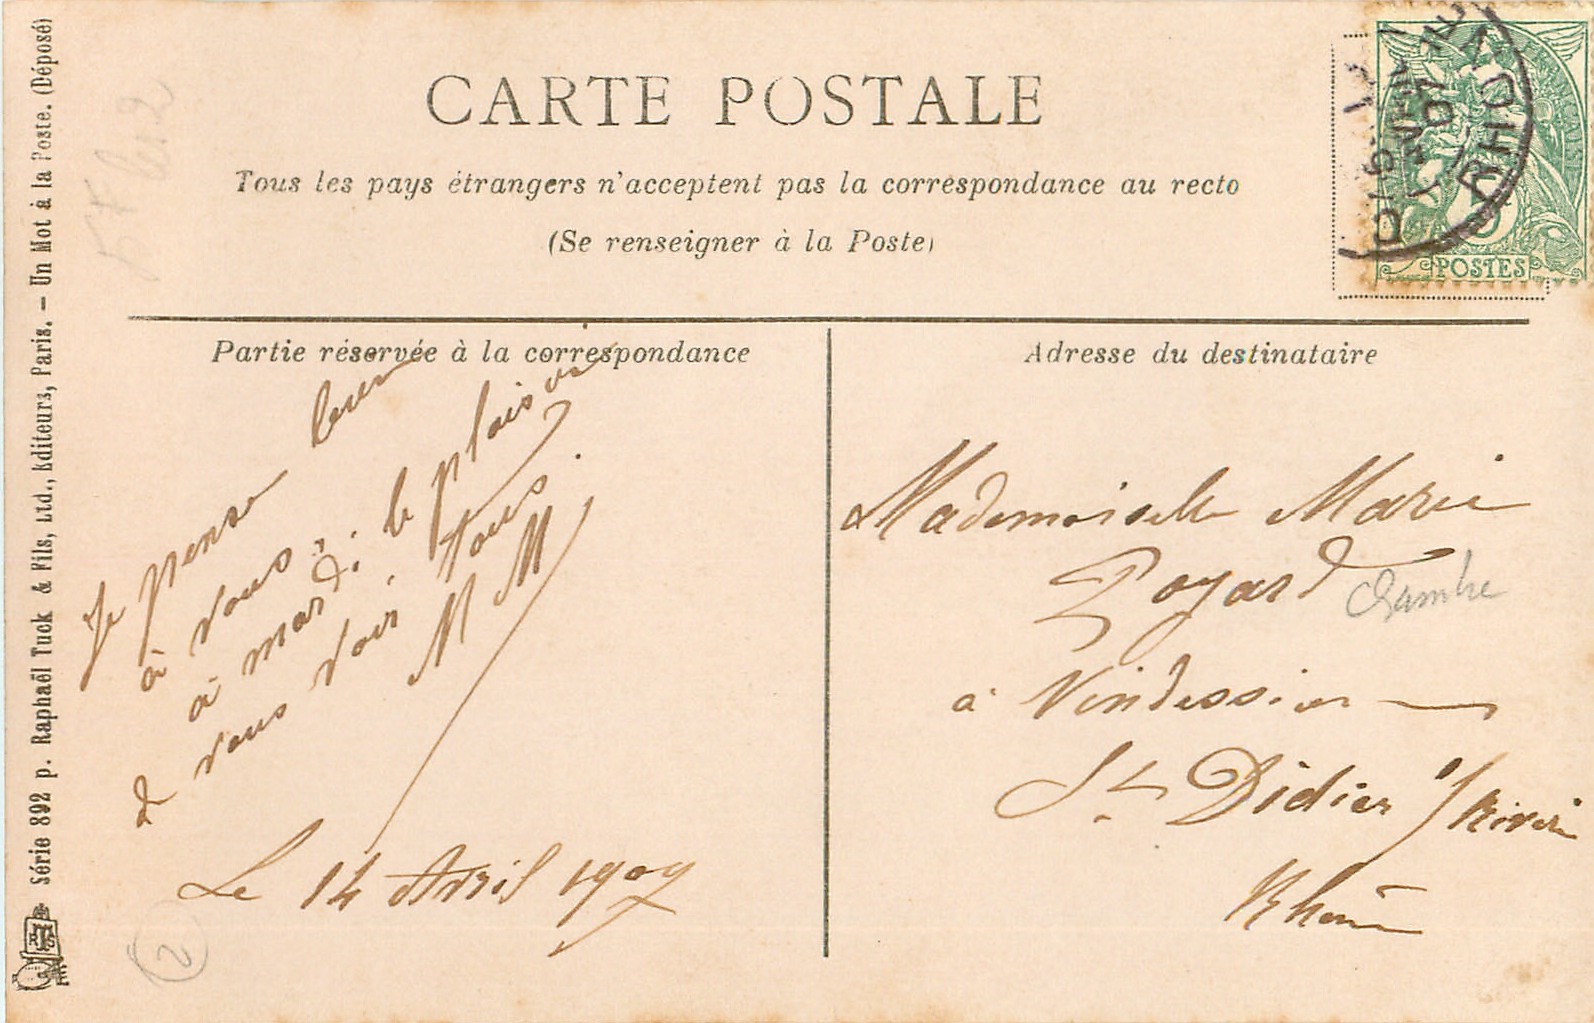 CARTE POSTALE
Tous les pays étrangers n'acceptent pas la correspondance au recto
(Se renseigner à la Poste)
Partie réservée à la correspondance
Adresse du destinataire
Je pense bien
à vous,
à mardi le plaisir
de vous voir. tous.
M M
Le 14 Avril 1907
Mademoiselle Marie
Poyard
à Vindessier
St. Didier s/ Riverie
Rhône
POSTES
RHÔNE
Série 892 p. Raphaël Tuck & Fils, Ltd., Éditeurs, Paris. – Un Mot à la Poste. (Déposé)
2